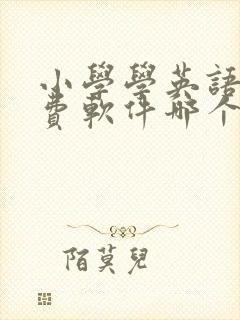 小學學英語
費軟件哪个
陌莫兒